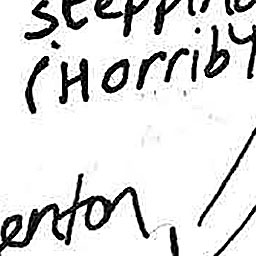 steppin
(Horriby
enton,